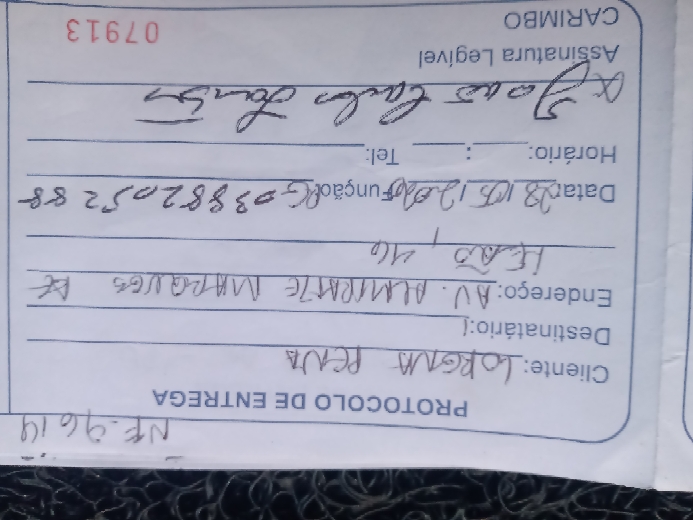 NF. 9614
PROTOCOLO DE ENTREGA
Cliente: LORENA PENA
Destinatário:
Endereço: AV. ALMIRANTE MARQUES DE
LEÃO, 46
Data: 28/05/2020 Função: RG 0388205288
Horário: ___:___ Tel:
X João Carlos Santos
Assinatura Legível
CARIMBO
07913